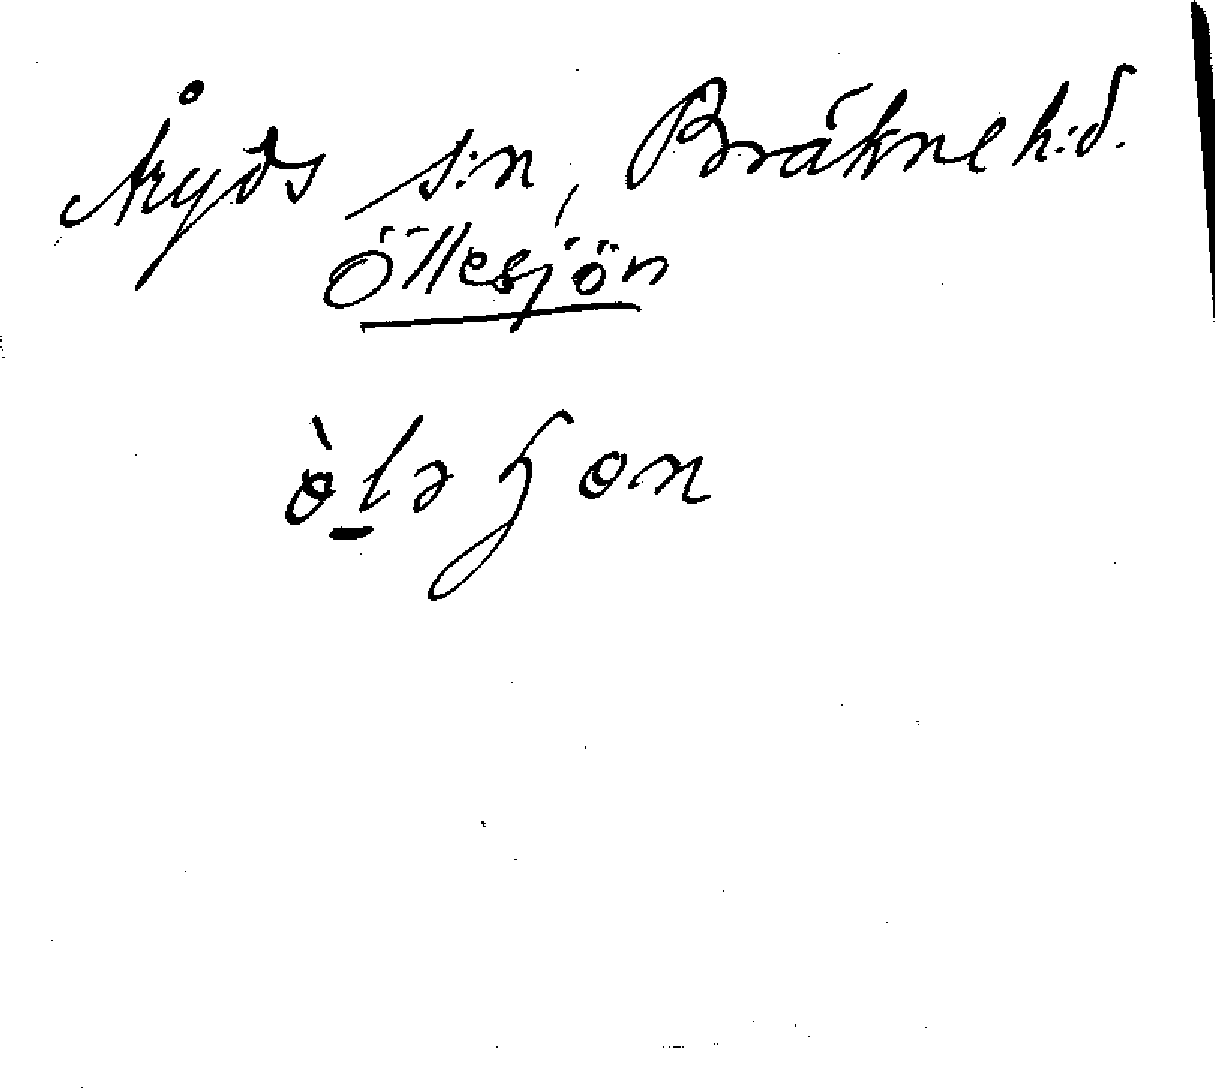 Åryds s:n, Bräkne h:d.
Öllesjön